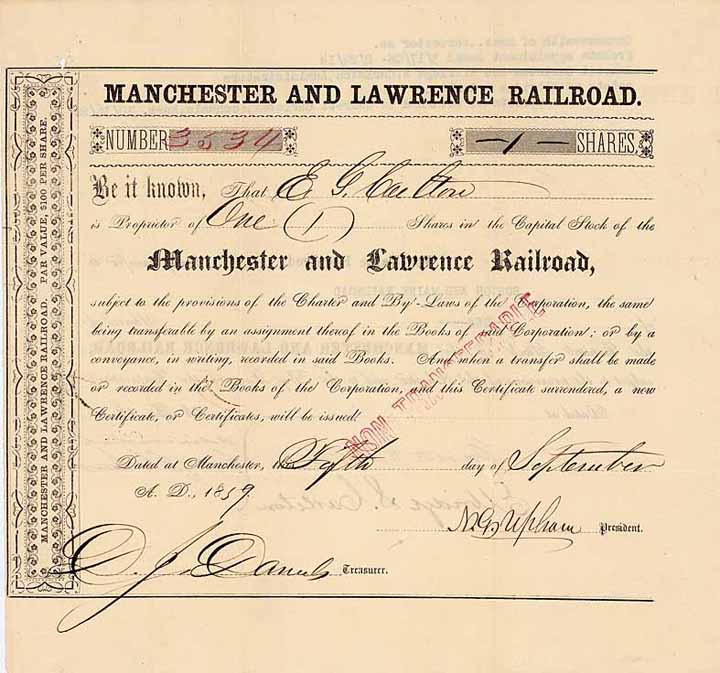 MANCHESTER AND LAWRENCE RAILROAD.
NUMBER 3534 — 1 — SHARES.
Be it known, That E. G. Carlton
is Proprietor of One (1) Shares in the Capital Stock of the
Manchester and Lawrence Railroad,
subject to the provisions of the Charter and By-Laws of the Corporation, the same
being transferable by an assignment thereof in the Books of said Corporation; or by a
conveyance, in writing, recorded in said Books. And when a transfer shall be made
or recorded in the Books of the Corporation, and this Certificate surrendered, a new
Certificate, or Certificates, will be issued.
NON TRANSFERABLE
Dated at Manchester, the Fifth day of September
A. D., 1859.
N. G. Upham President.
D. J. Daniels Treasurer.
MANCHESTER AND LAWRENCE RAILROAD PAR VALUE, $100 PER SHARE.